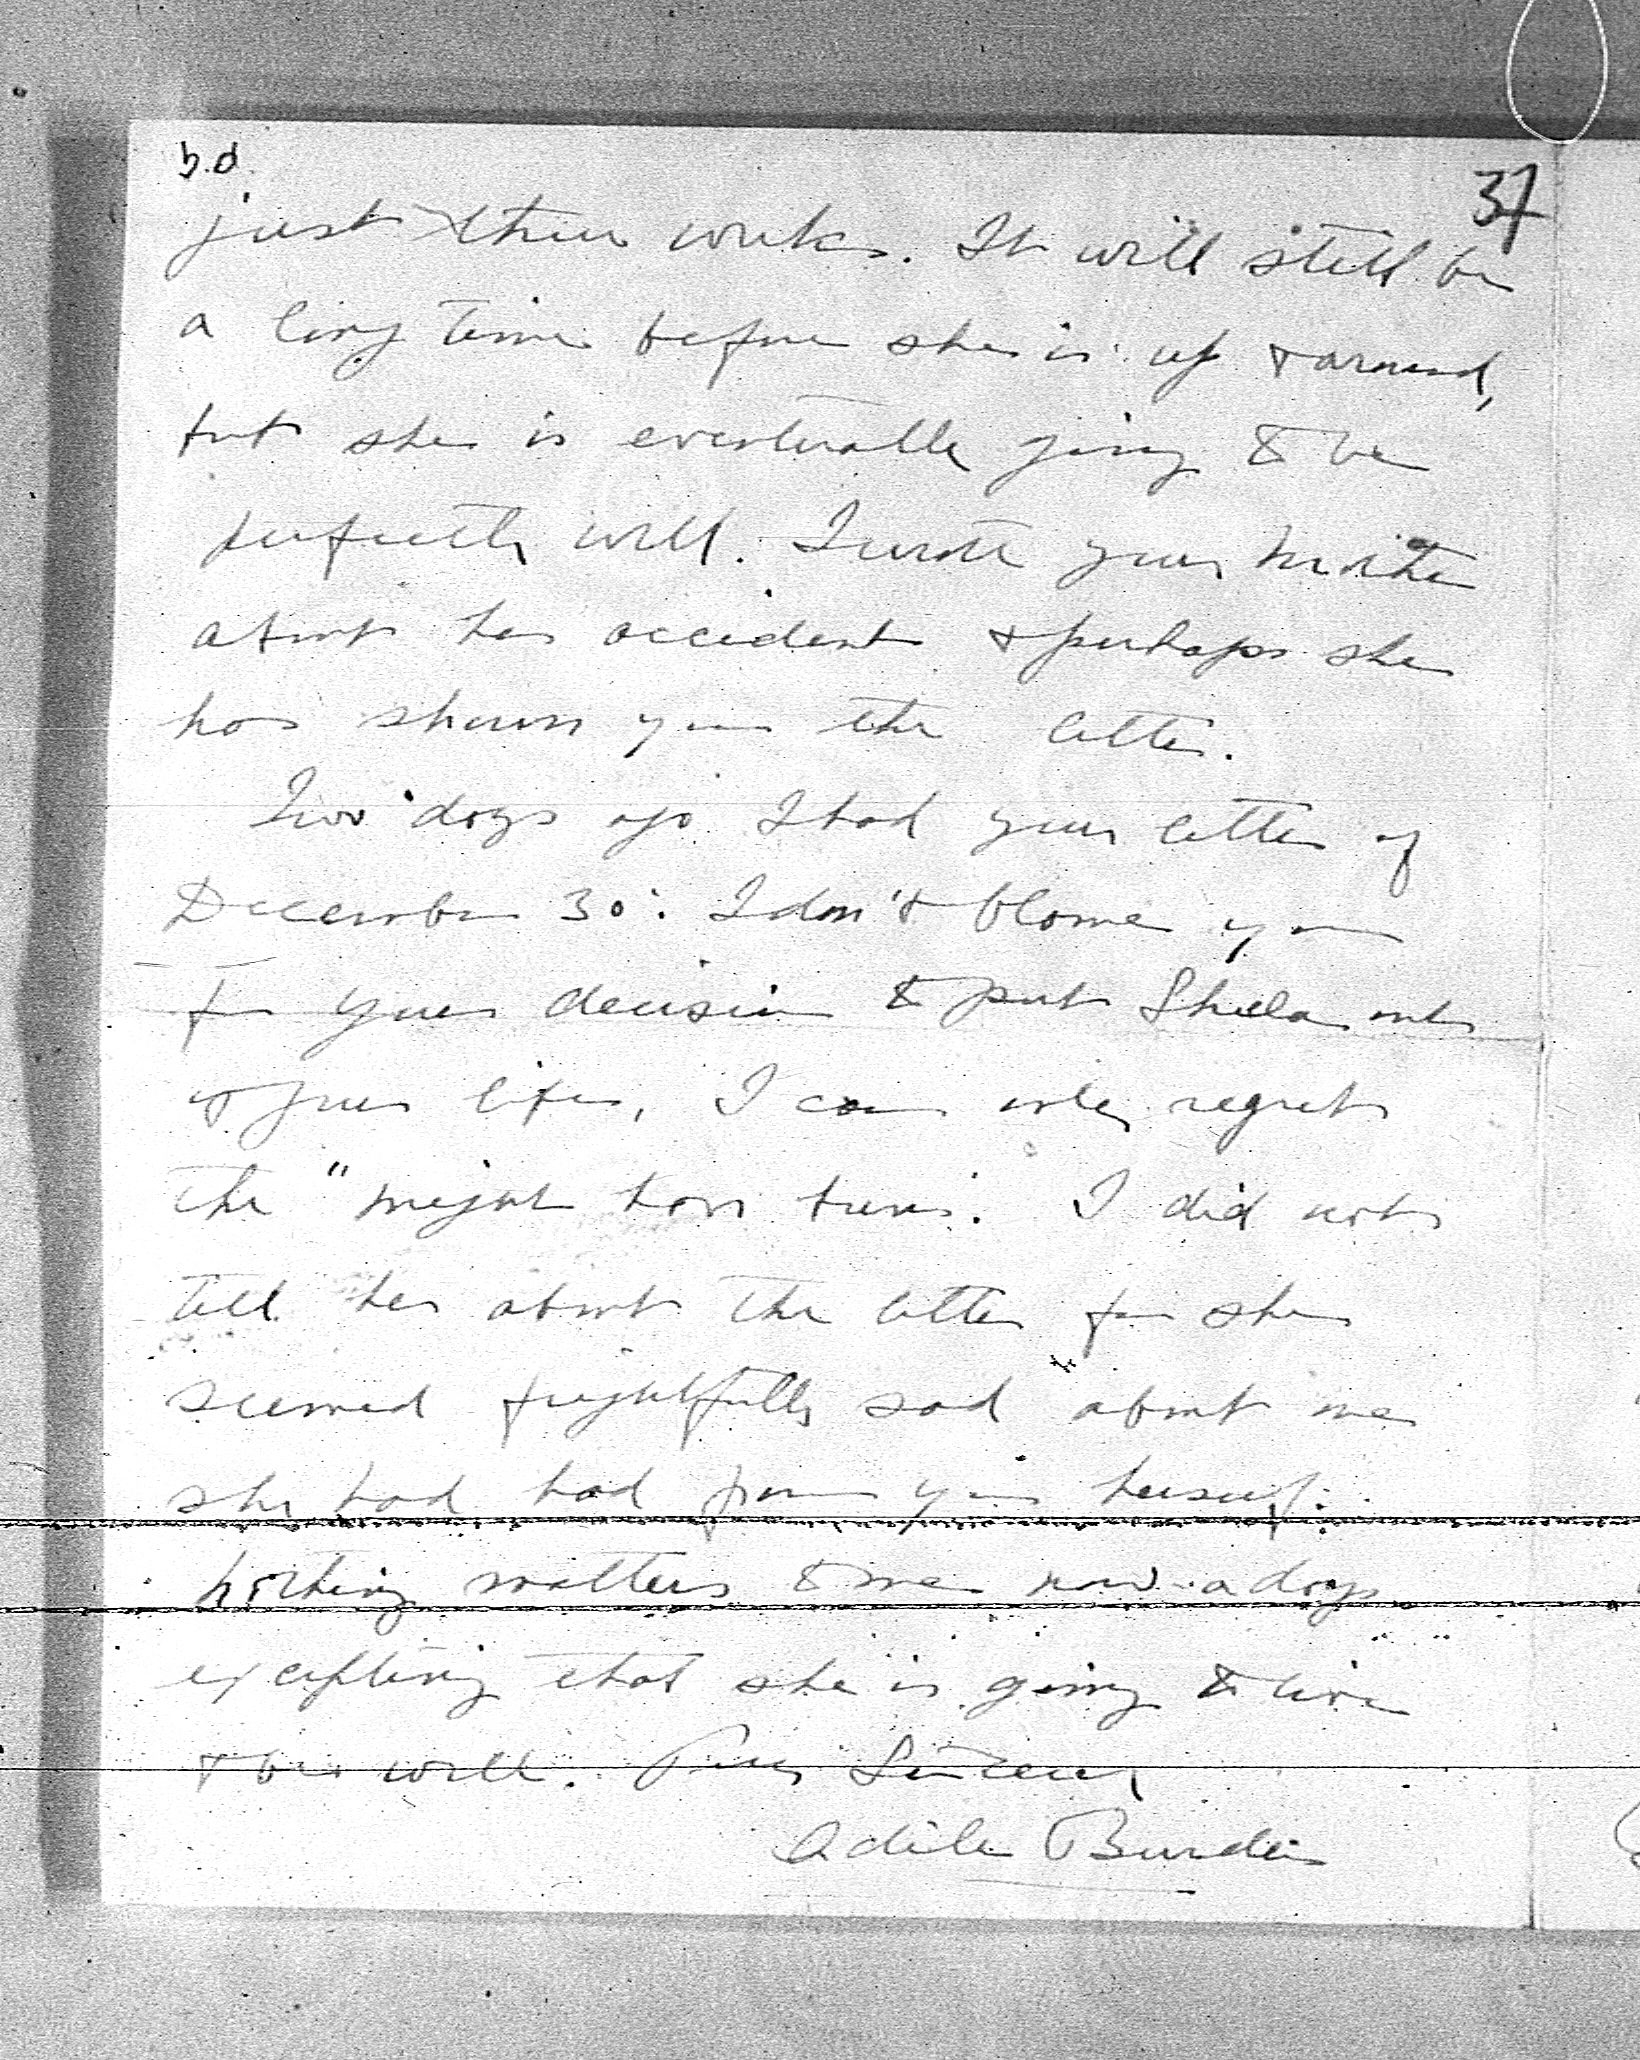 b.d.
37
just three weeks. It will still be
a long time before she is up & around,
but she is eventually going to be
perfectly well. I wrote your mother
about her accident & perhaps she
has shown you the letter.
Two days ago I had your letter of
December 30. I don't blame you
for your decision to put Sheila out
of your life, I can only regret
the "might have been". I did not
tell her about the letter for she
seemed frightfully sad about one
she had had from you herself.
Nothing matters to me now-a-days
excepting that she is going to live
& be well. Very Sincerely
Adele Burden